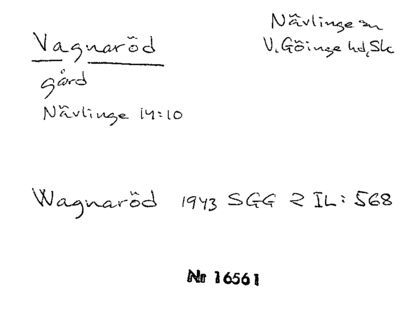 Vagnaröd
Nävlinge sn
V. Göinge hd, Sk
gård
Nävlinge 14:10
Wagnaröd 1943 SGG 2 IL: 568
Nr 16561